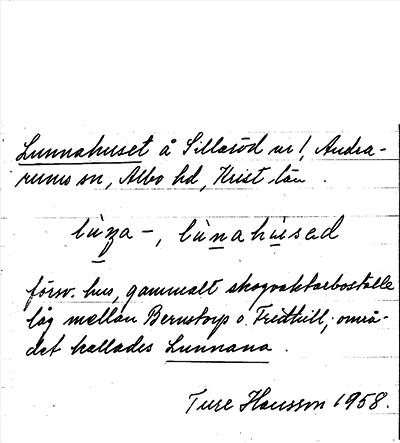 Lunnahuset å Sillaröd nr 1, Andra-
rums sn, Albo hd, Krist län.
lùna-, lùnahùsəd
försv. hus, gammalt skogvaktarboställe
låg mellan Bernstorp o. Fridhill; områ-
det kallades Lunnana.
Ture Hansson 1958.